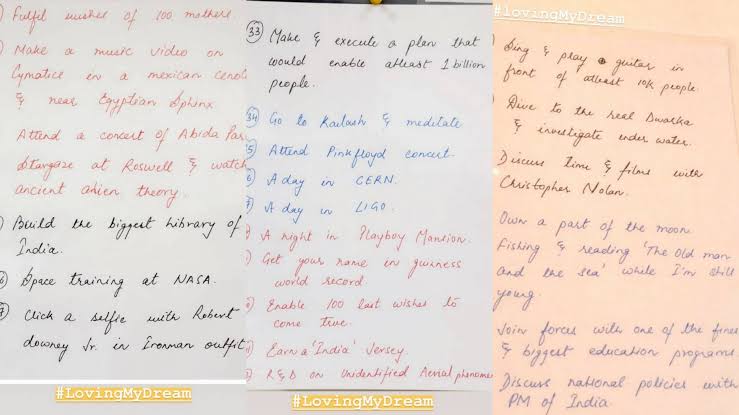 Fulfil wishes of 100 mothers.
Make a music video on
Cymatics in a mexican cenot
& near Egyptian Sphinx
Attend a concert of Abida Par
Stargaze at Roswell & watch
ancient alien theory.
Build the biggest library of
India.
Space training at NASA.
Click a selfie with Robert
downey Jr. in Ironman outfit
#LovingMyDream
33) Make & execute a plan that
would enable atleast 1 billion
people.
34) Go to Kailash & meditate
5) Attend Pink floyd concert.
6) A day in CERN.
7) A day in LIGO.
A night in Playboy Mansion.
Get your name in guiness
world record.
Enable 100 last wishes to
come true.
Earn a 'India' Jersey.
R&D on Unidentified Aerial phenome
#LovingMyDream
#LovingMyDream
Sing & play guitar in
front of atleast 10k people.
Dive to the real Dwarka
& investigate under water.
Discuss time & films with
Christopher Nolan.
Own a part of the moon
Fishing & reading 'The Old man
and the sea' while I'm still
young.
Join forces with one of the fines
& biggest education programs.
Discuss national policies with
PM of India